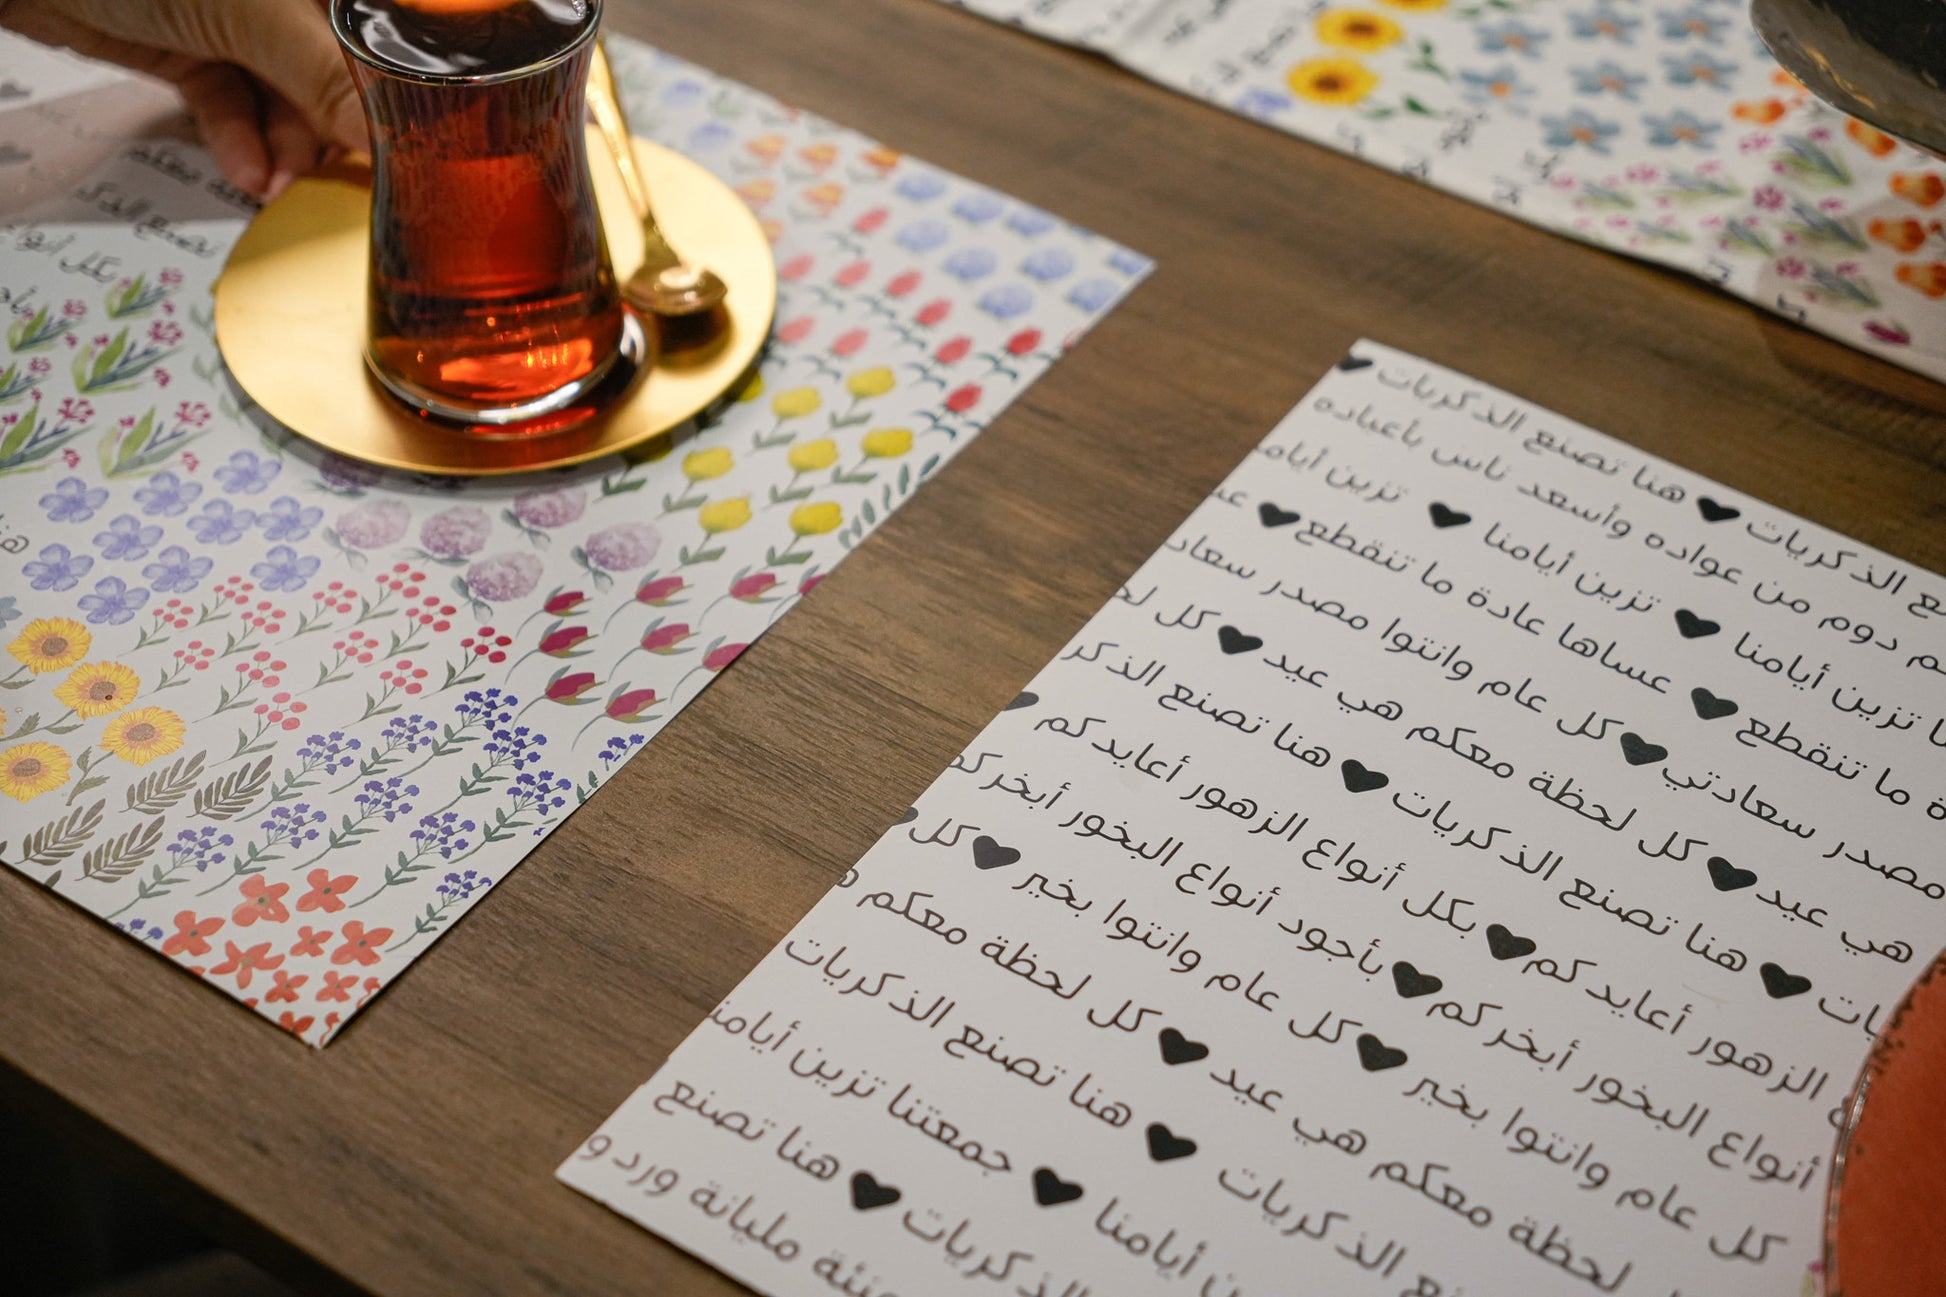 هنا تصنع الذكريات
دوم من عواده وأسعد ناس بأعياده
تزين أيامنا ♥ تزين أيامنا ♥ تزين
ة ما تنقطع ♥ عساها عادة ما تنقطع ♥
مصدر سعادتي ♥ كل عام وانتوا مصدر
هي عيد ♥ كل لحظة معكم هي عيد ♥ كل
♥ هنا تصنع الذكريات ♥ هنا تصنع
الزهور أعايدكم ♥ بكل أنواع الزهور أعايدكم ♥
أنواع البخور أبخركم ♥ بأجود أنواع البخور
كل عام وانتوا بخير ♥ كل عام وانتوا بخير ♥ كل
لحظة معكم هي عيد ♥ كل لحظة معكم
الذكريات ♥ هنا تصنع الذكريات
أيامنا ♥ جمعتنا تزين
الذكريات ♥ هنا تصنع
مليانة ورد و
معكم
تصنع
بكل